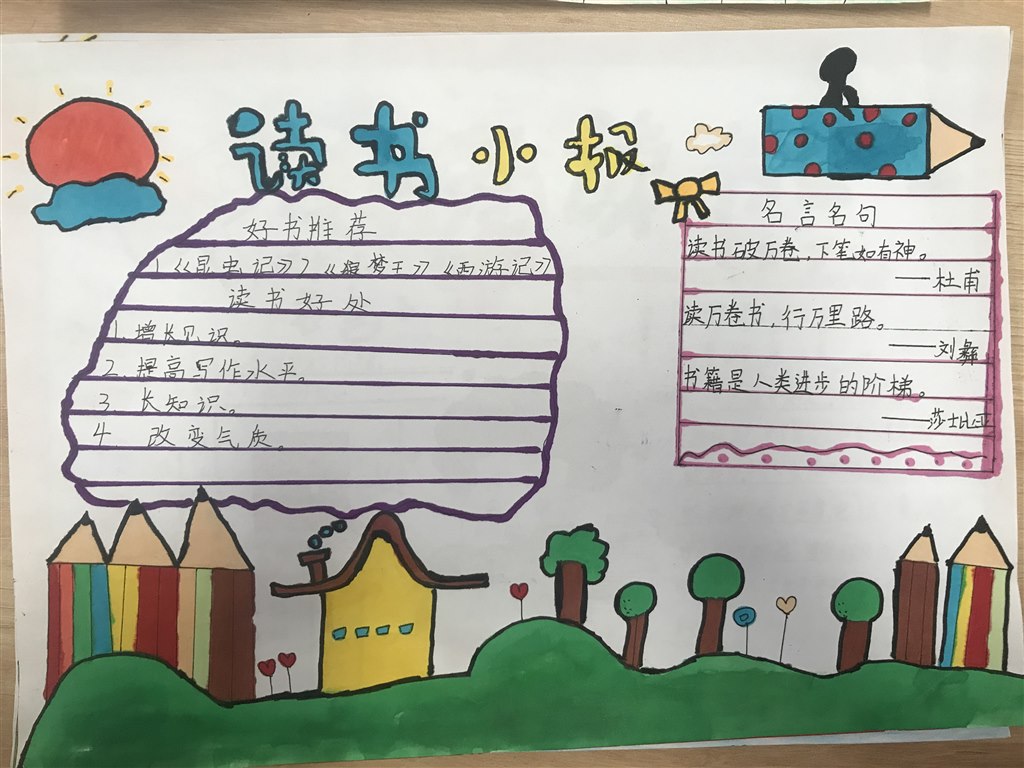 读书小报
好书推荐
1《昆虫记》》《狼梦王》《西游记》
读书好处
1 增长见识。
2. 提高写作水平。
3 长知识。
4 改变气质。
名言名句
读书破万卷，下笔如有神。
——杜甫
读万卷书，行万里路。
——刘彝
书籍是人类进步的阶梯。
——莎士比亚